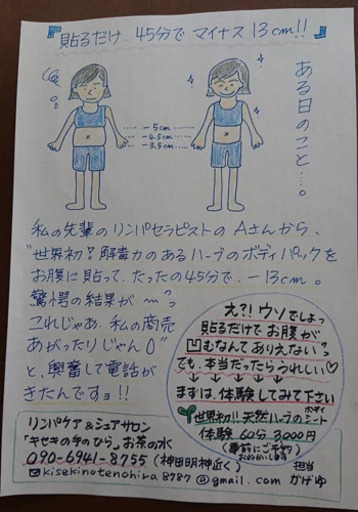 『貼るだけ．45分で マイナス 13cm!!』
ある日のこと…。
−5cm
−4.5cm
−3.5cm
私の先輩の リンパセラピストの Aさんから、
"世界初? 解毒力のあるハーブのボディパックを
お腹に貼って、たったの45分で、−13cm。
驚愕の結果が
これじゃあ、私の商売
あがったりじゃん
と、興奮して電話が
きたんですョ!!
え?! ウソでしょっ
貼るだけでお腹が
凹むなんてありえないっ
でも、本当だったらうれしい♡
↓ ↓ ↓ ↓ ↓
まずは、体験してみて下さい
世界初!! 天然ハーブのボディシート
体験 60分 3,000円
(事前にご予約おねがいします)
リンパケア＆シェアサロン
「キセキの手のひら」お茶の水
090-6941-8755 (神田明神近く)
担当 かげゆ
✉kisekinotenohira.8787@gmail.com